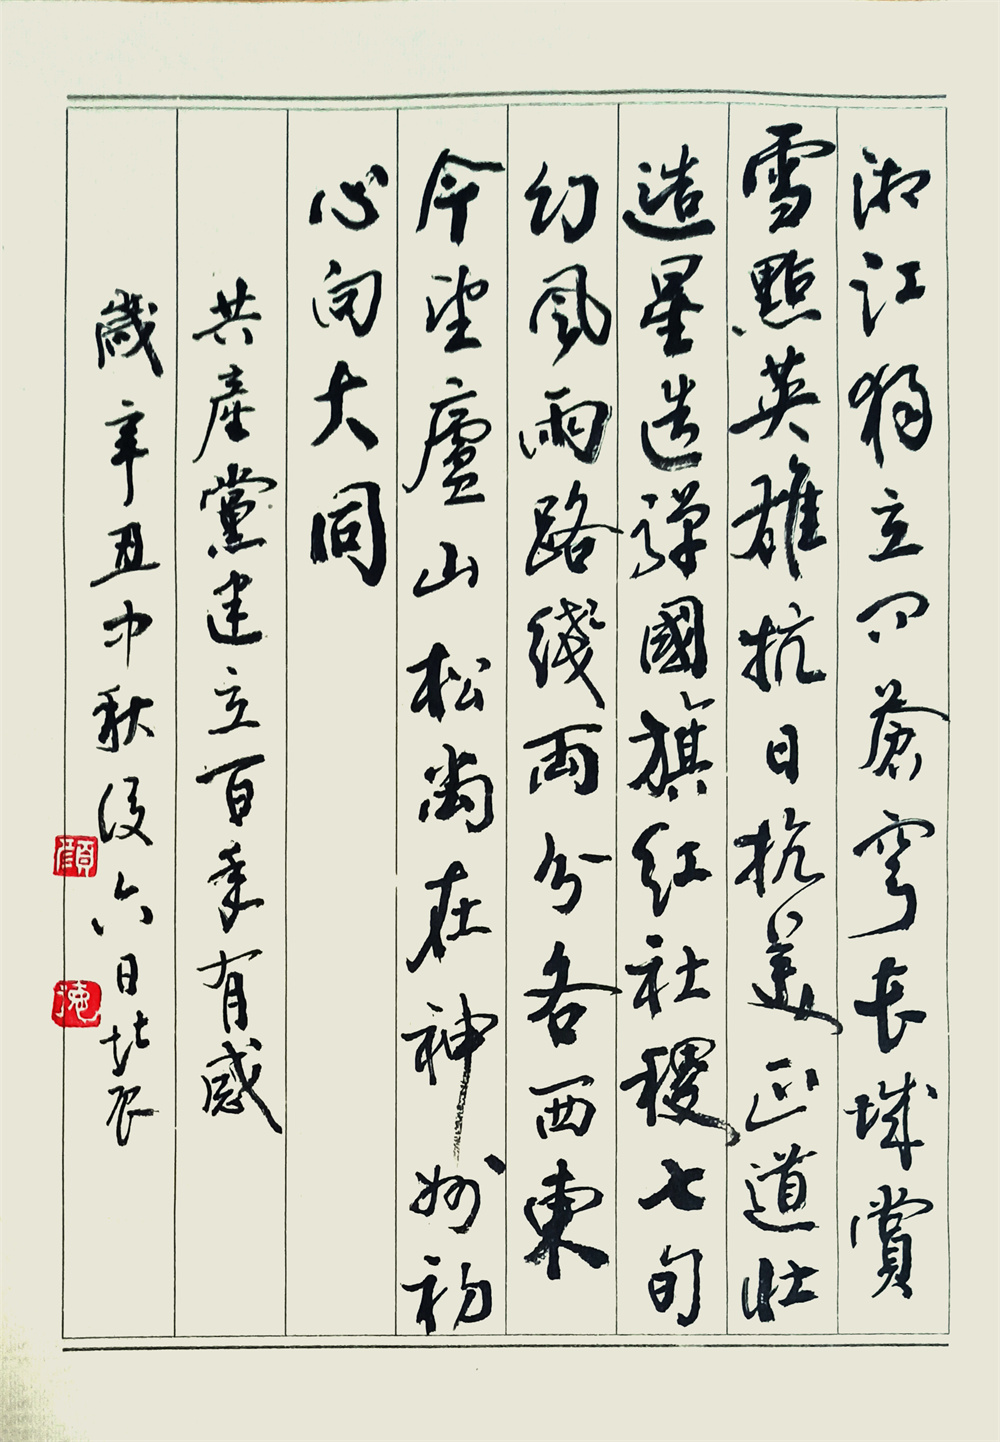 湘江獨立問蒼穹長城賞
雪點英雄抗日抗美正道壯
造星造彈國旗紅社稷七旬
幻風雨路綫兩分各西東
今望廬山松尚在神州初
心向大同
共產黨建立百年有感
歲辛丑中秋後六日北辰
顏
德